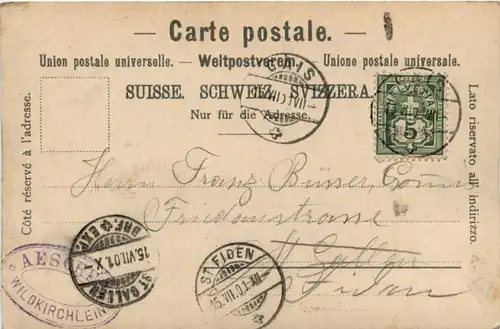 Carte postale.
Union postale universelle. — Weltpostverein. — Unione postale universale.
SUISSE. SCHWEIZ. SVIZZERA.
Nur für die Adresse.
Côté réservé à l'adresse.
Lato riservato all' indirizzo.
GAIS
HELVETIA
5
Herrn Franz Büsser,
Friedaustrasse
St. Gallen
Fiden
AESCHER
WILDKIRCHLEIN
ST GALLEN
15.VII.01.X
BRF. EXP.
ST. FIDEN
15.VII.01.XII